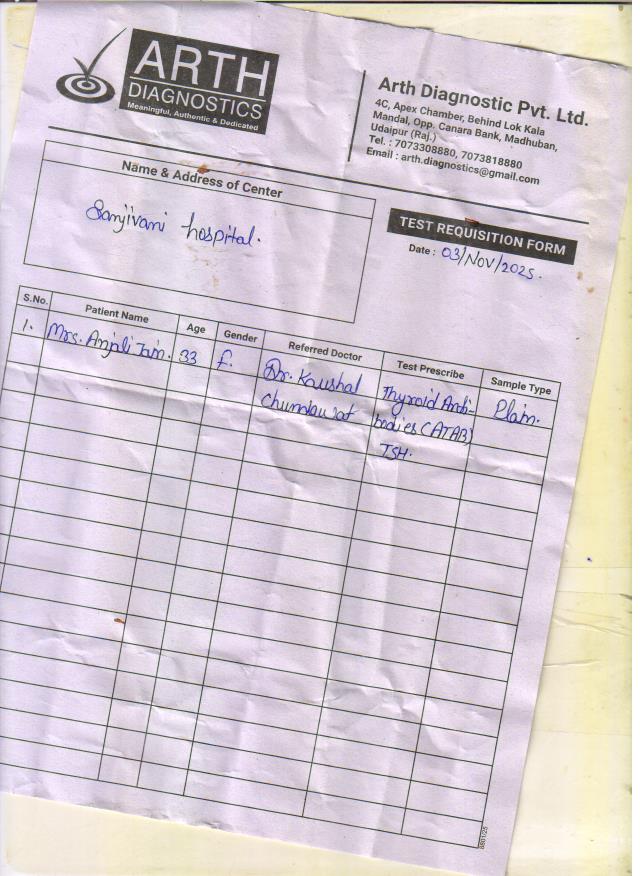 ARTH
DIAGNOSTICS
Meaningful, Authentic & Dedicated
Arth Diagnostic Pvt. Ltd.
4C, Apex Chamber, Behind Lok Kala
Mandal, Opp. Canara Bank, Madhuban,
Udaipur (Raj.)
Tel. : 7073308880, 7073818880
Email : arth.diagnostics@gmail.com
Name & Address of Center
Sanjivani hospital.
TEST REQUISITION FORM
Date : 03/Nov/2025.
S.No. Patient Name Age Gender Referred Doctor Test Prescribe Sample Type
1. Mrs. Anjali Jain. 33 f. Dr. Kaushal Thyroid Anti- Plain.
Chundawat bodies (ATAB)
TSH.